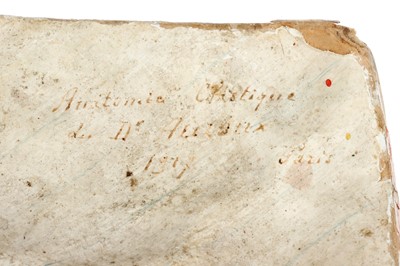 Anatomie Clastique
du Dr Auzoux
Paris